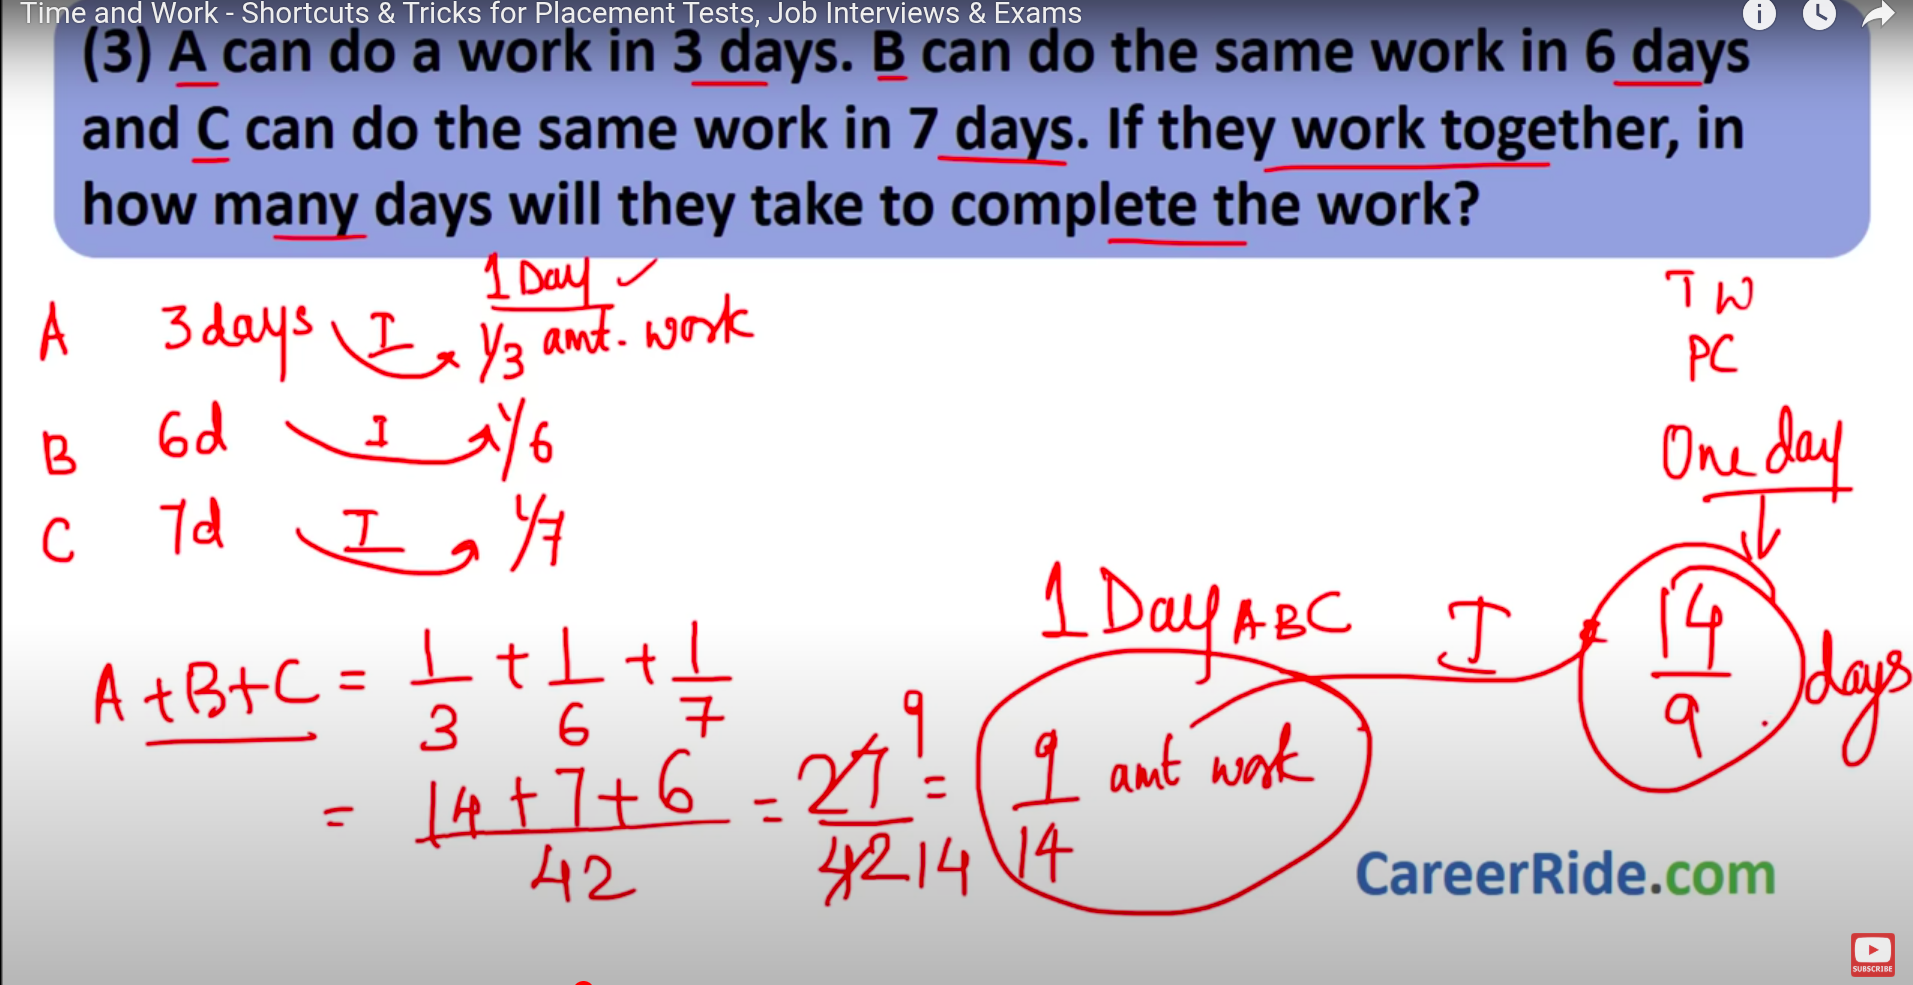 Time and Work - Shortcuts & Tricks for Placement Tests, Job Interviews & Exams
(3) A can do a work in 3 days. B can do the same work in 6 days
and C can do the same work in 7 days. If they work together, in
how many days will they take to complete the work?
1 Day ✓
A 3 days I 1/3 amt. work
B 6d I 1/6
C 7d I 1/7
T W
PC
One day
1 Day ABC I 14/9 days
A+B+C = 1/3 + 1/6 + 1/7
= 14+7+6/42 = 27/42 9/14 = 9/14 amt work
CareerRide.com
SUBSCRIBE